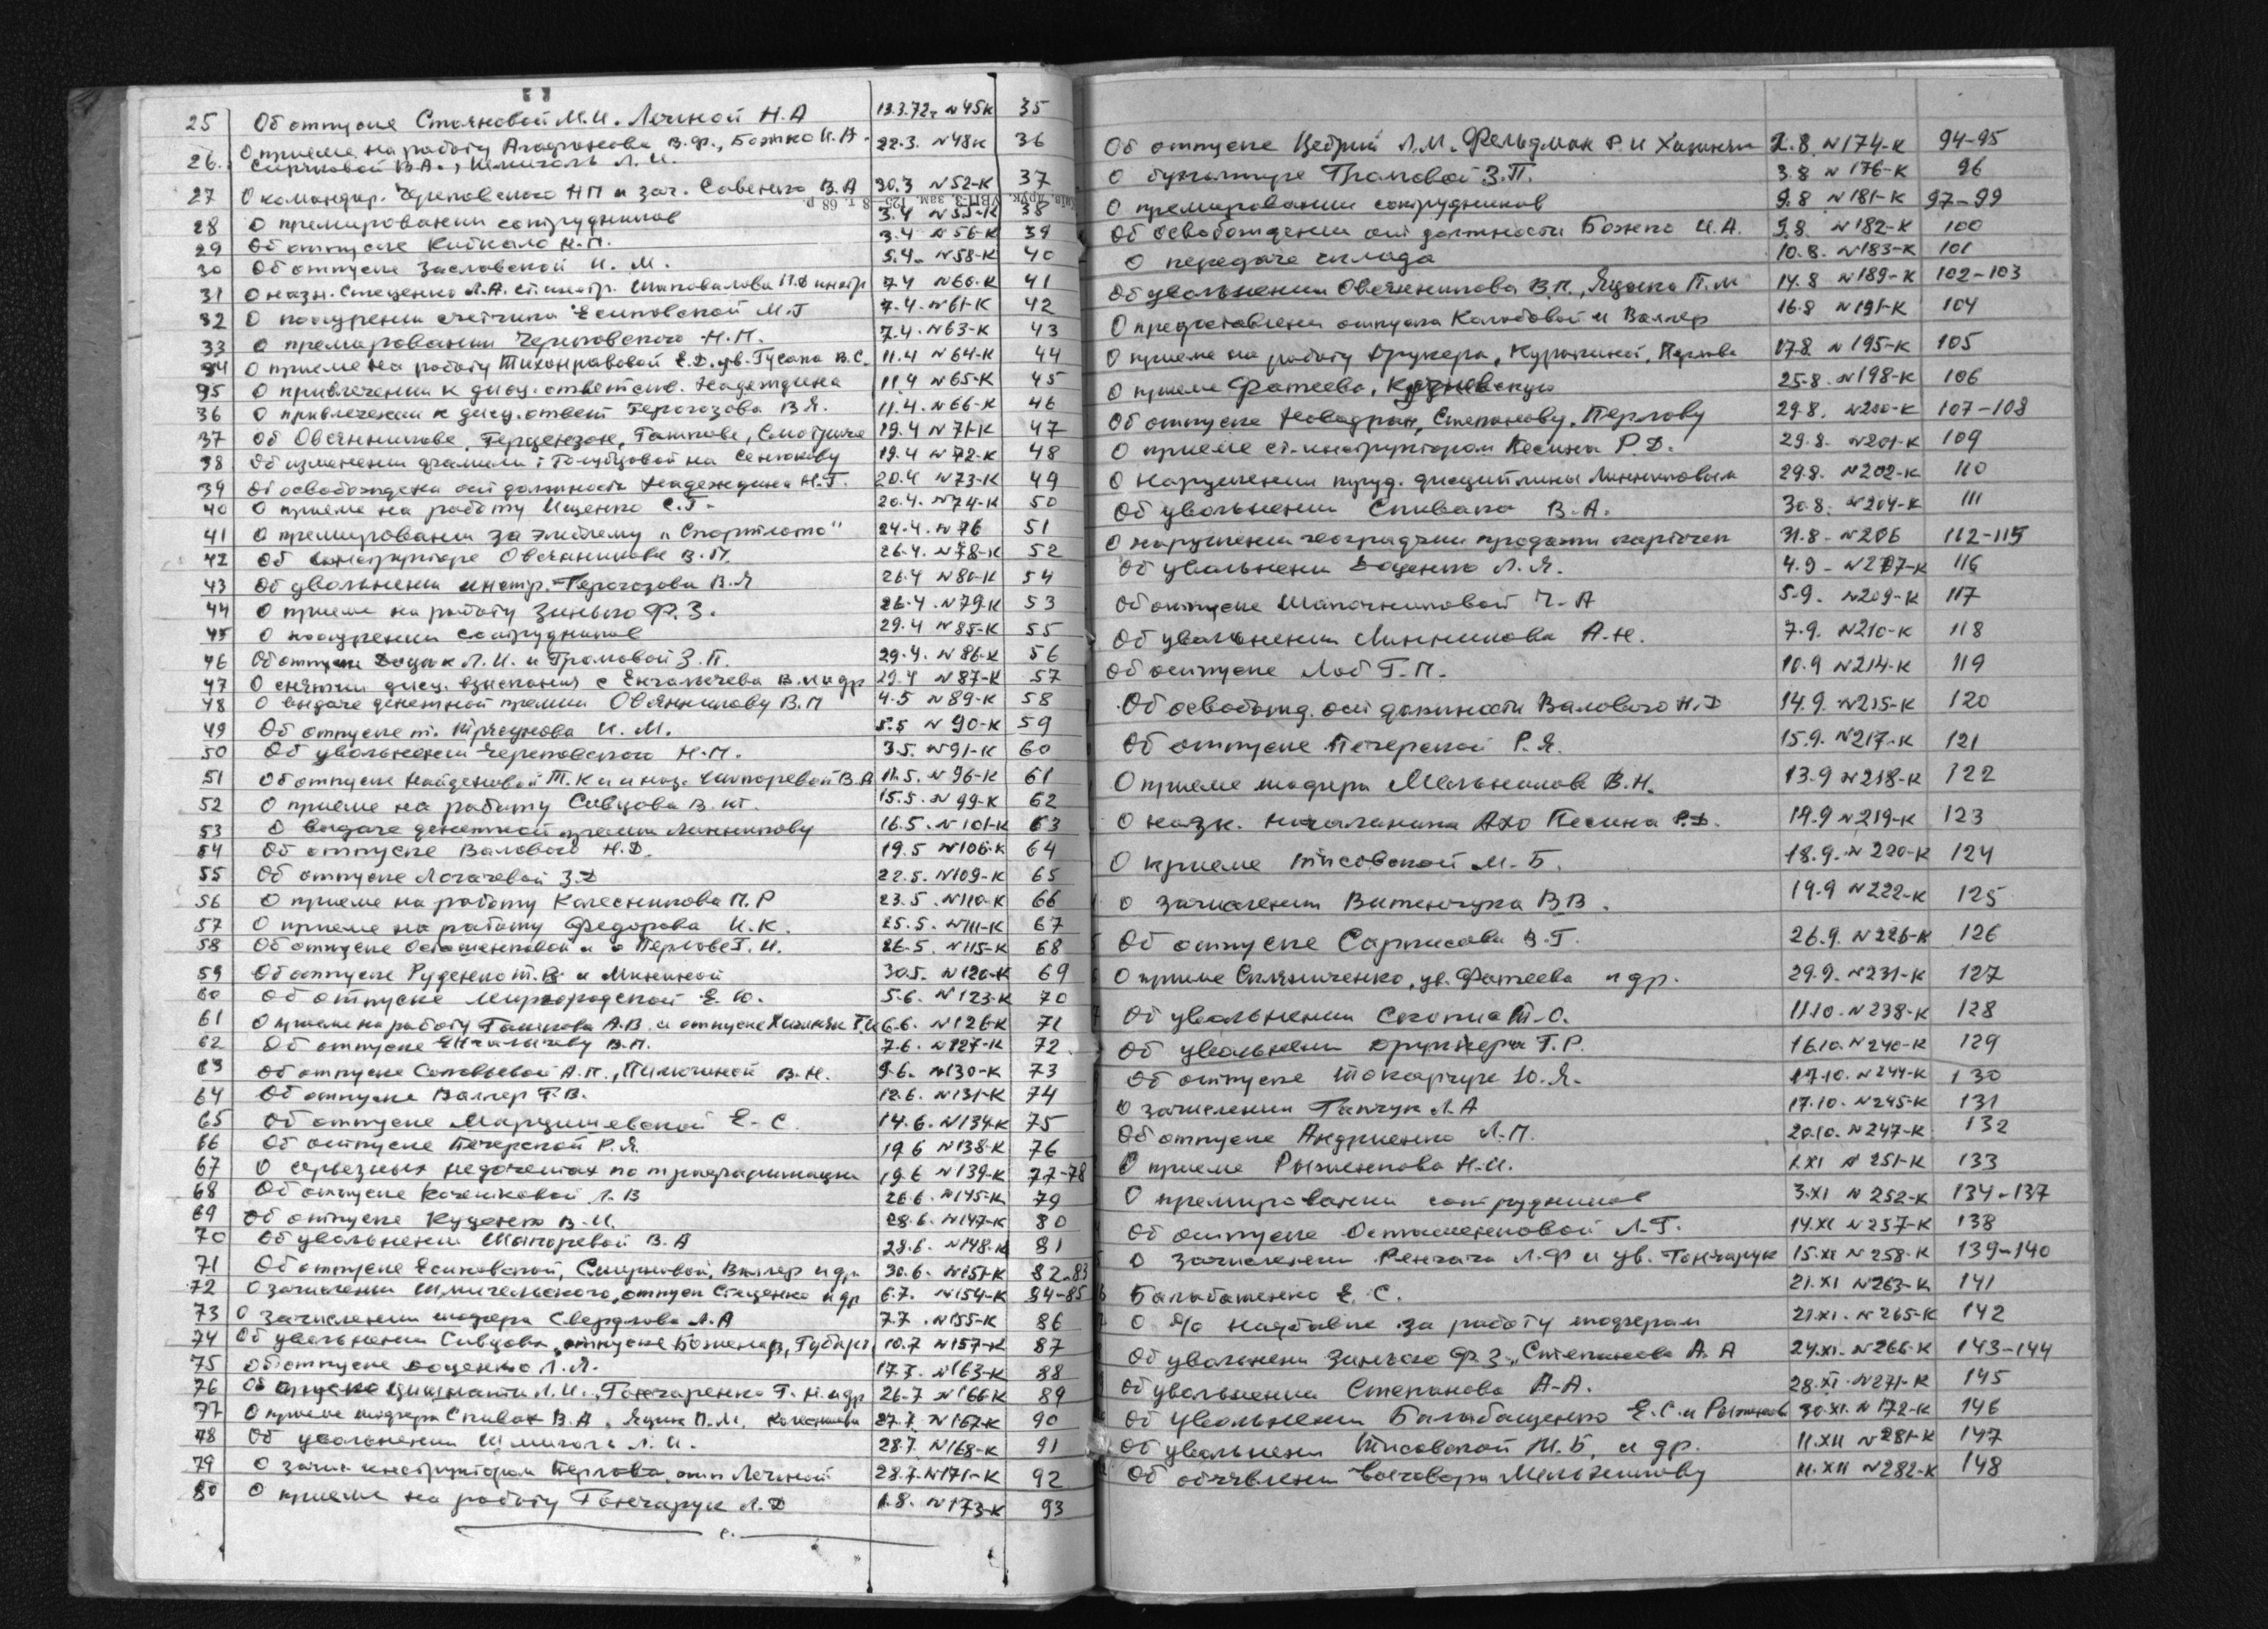 25 Об отпуске Стояновой М.И. Лечной Н.А 13.3.72г. №45к 35
26. О приеме на работу Агафонова В.Ф., Божко И.А. 22.3. №48к 36
Сирчковой В.А., Шмигаль Л.И.
27 О командир. Черповского НП и зач. Савенко В.А 30.3 №52-К 37
28 О премировании сотрудников 3.4 №55-К 38
29 Об отпуске Кабкало Н.П. 3.4 №56-К 39
30 Об отпуске Заславской И.М. 5.4. №58-К 40
31 О назн. Стеценко Л.А. ст.инстр. Шаповалова П.Д инстр 7.4 №60-К 41
32 О поощрении счетчика Есиповской М.Т 7.4. №61-К 42
33 О премировании Черповского Н.П. 7.4. №63-К 43
34 О приеме на работу Тихонравовой Е.Д. ув. Гусака В.С. 11.4 №64-К 44
35 О привлечении к дисц. ответств. Надеждина 11.4 №65-К 45
36 О привлечении к дисц. ответ Герогозова В.Я. 11.4. №66-К 46
37 Об Овсянникове, Герцензон, Ташкове, 19.4 №71-К 47
38 Об изменении фамилии: Голубцовой на Сенюкову 19.4 №72-К 48
39 Об освобождении от должности Надеждина Н.Г. 20.4 №73-К 49
40 О приеме на работу Ищенко С.Г. 20.4. №74-К 50
41 О премировании за эмблему "Спортлото" 24.4. №76 51
42 Об инструкторе Овсянникове В.П. 26.4. №78-К 52
43 Об увольнении инстр. Герогозова В.Я 26.4 №80-К 54
44 О приеме на работу Зинько Ф.З. 26.4. №79-К 53
45 О поощрении сотрудников 29.4 №85-К 55
46 Об отпуске Доцак Л.И. и Громовой З.П. 29.4. №86-К 56
47 О снятии дисц. взыскания с Енгалычева В.М и др 29.4 №87-К 57
48 О выдаче денежной премии Овсянникову В.П 4.5 №89-К 58
49 Об отпуске т. И.М. 5.5 №90-К 59
50 Об увольнении Черповского Н.П. 3.5. №91-К 60
51 Об отпуске Найденовой Т.К и и назн. Шапоревой В.А 11.5. №96-К 61
52 О приеме на работу Сивцова В. 15.5. №99-К 62
53 О выдаче денежной премии Линникову 16.5. №101-К 63
54 Об отпуске Валового Н.Д. 19.5 №106-К 64
55 Об отпуске Логачевой З.Д 22.5. №109-К 65
56 О приеме на работу Колесникова П.Р 23.5. №110-К 66
57 О приеме на работу Федорова И.К. 25.5. №111-К 67
58 Об отпуске Осташенковой и о Перлове Г.И. 26.5. №115-К 68
59 Об отпуске Руденко Т.В и Мининой 30.5. №120-К 69
60 Об отпуске Миргородской Е.Ю. 5.6. №123-К 70
61 О приеме на работу Ташкова А.В. и отпуске Хизиняк Г.И 6.6. №126-К 71
62 Об отпуске Енгалычеву В.М. 7.6. №127-К 72
63 Об отпуске Соловьевой А.П., Пилюгиной В.Н. 9.6. №130-К 73
64 Об отпуске Валлер Г.В. 12.6. №131-К 74
65 Об отпуске Марцишевской Е.С. 14.6. №134-К 75
66 Об отпуске Печерской Р.Я. 19.6 №138-К 76
67 О серьезных недочетах по 19.6 №139-К 77-78
68 Об отпуске Коченковой Л.В 26.6. №145-К 79
69 Об отпуске Куценко В.И. 28.6. №147-К 80
70 Об увольнении Шапоревой В.А 28.6. №148-К 81
71 Об отпуске Есиповской, Смирновой, Валлер и др. 30.6. №151-К 82-83
72 О зачислении Шмигельского, отпуск Стеценко и др 6.7. №154-К 84-85
73 О зачислении шофера Свердлова Л.А 7.7. №155-К 86
74 Об увольнении Сивцова, отпуске 10.7 №157-К 87
75 Об отпуске Доценко Л.Я. 17.7. №163-К 88
76 Об отпуске Л.И., Гончаренко Г.Н. и др 26.7 №166-К 89
77 О приеме шофера Спивак В.А, Яцына П.М, 27.7. №167-К 90
78 Об увольнении Шмигаль Л.И. 28.7. №168-К 91
79 О зачис. инструктором Перлова, отп Лечной 28.7. №171-К 92
80 О приеме на работу Гончарук Л.Д 1.8. №173-К 93
Об отпуске Цебрий Л.М. Фельдман Р.И Хизиняк 2.8. №174-К 94-95
О бухгалтере Громовой З.П. 3.8 №176-К 96
О премировании сотрудников 9.8 №181-К 97-99
Об освобождении от должности Божко И.А. 9.8. №182-К 100
О передаче склада 10.8. №183-К 101
Об увольнении Овсянникова В.П., Яцына П.М 14.8 №189-К 102-103
О предоставлении отпуска Колобовой и Валлер 16.8 №191-К 104
О приеме на работу Друкера, Куракиной, Перлова 17.8. №195-К 105
О приеме Фатеева, 25.8. №198-К 106
Об отпуске Степанову, Перлову 29.8. №200-К 107-108
О приеме ст. инструктором Песина Р.Д. 29.8. №201-К 109
О нарушении труд. дисциплины Линниковым 29.8. №202-К 110
Об увольнении Спивака В.А. 30.8. №204-К 111
О нарушении географии продажи карточек 31.8. №206 112-115
Об увольнении Доценко Л.Я. 4.9. №207-К 116
Об отпуске Шапочниковой Г.А 5.9. №209-К 117
Об увольнении Линникова А.Н. 7.9. №210-К 118
Об отпуске Лоб Г.П. 10.9 №214-К 119
Об освобожд. от должности Валового Н.Д 14.9. №215-К 120
Об отпуске Печерской Р.Я. 15.9. №217-К 121
О приеме шофера Мельников В.Н. 13.9 №218-К 122
О назн. начальника АХО Песина Р.Д. 19.9 №219-К 123
О приеме Тисовской М.Б. 18.9. №220-К 124
О зачислении Витенчука В.В. 19.9 №222-К 125
Об отпуске Саркисова В.Г. 26.9. №226-К 126
О приеме Скляниченко, ув. Фатеева и др. 29.9. №231-К 127
Об увольнении Т.О. 11.10. №238-К 128
Об увольнении Друкера Г.Р. 16.10. №240-К 129
Об отпуске Токарчук Ю.Я. 17.10. №244-К 130
О зачислении Гапчук Л.А 17.10. №245-К 131
Об отпуске Андриенко Л.П. 20.10. №247-К 132
О приеме Рыженкова Н.И. 1.XI №251-К 133
О премировании сотрудников 3.XI №252-К 134-137
Об отпуске Осташенковой Л.Г. 14.XI №257-К 138
О зачислении Ренгача Л.Ф и ув. Гончарук 15.XI №258-К 139-140
Балабатенко Е.С. 21.XI №263-К 141
О % надбавке за работу шоферам 21.XI. №265-К 142
Об увольнении Зинько Ф.З., Степанова А.А 24.XI. №266-К 143-144
Об увольнении Степанова А.А. 28.XI. №271-К 145
Об увольнении Балабащенко Е.С. и Рыженков 30.XI. №172-К 146
Об увольнении Тисовской М.Б. и др. 11.XII №281-К 147
Об объявлении выговора Мельникову 11.XII №282-К 148